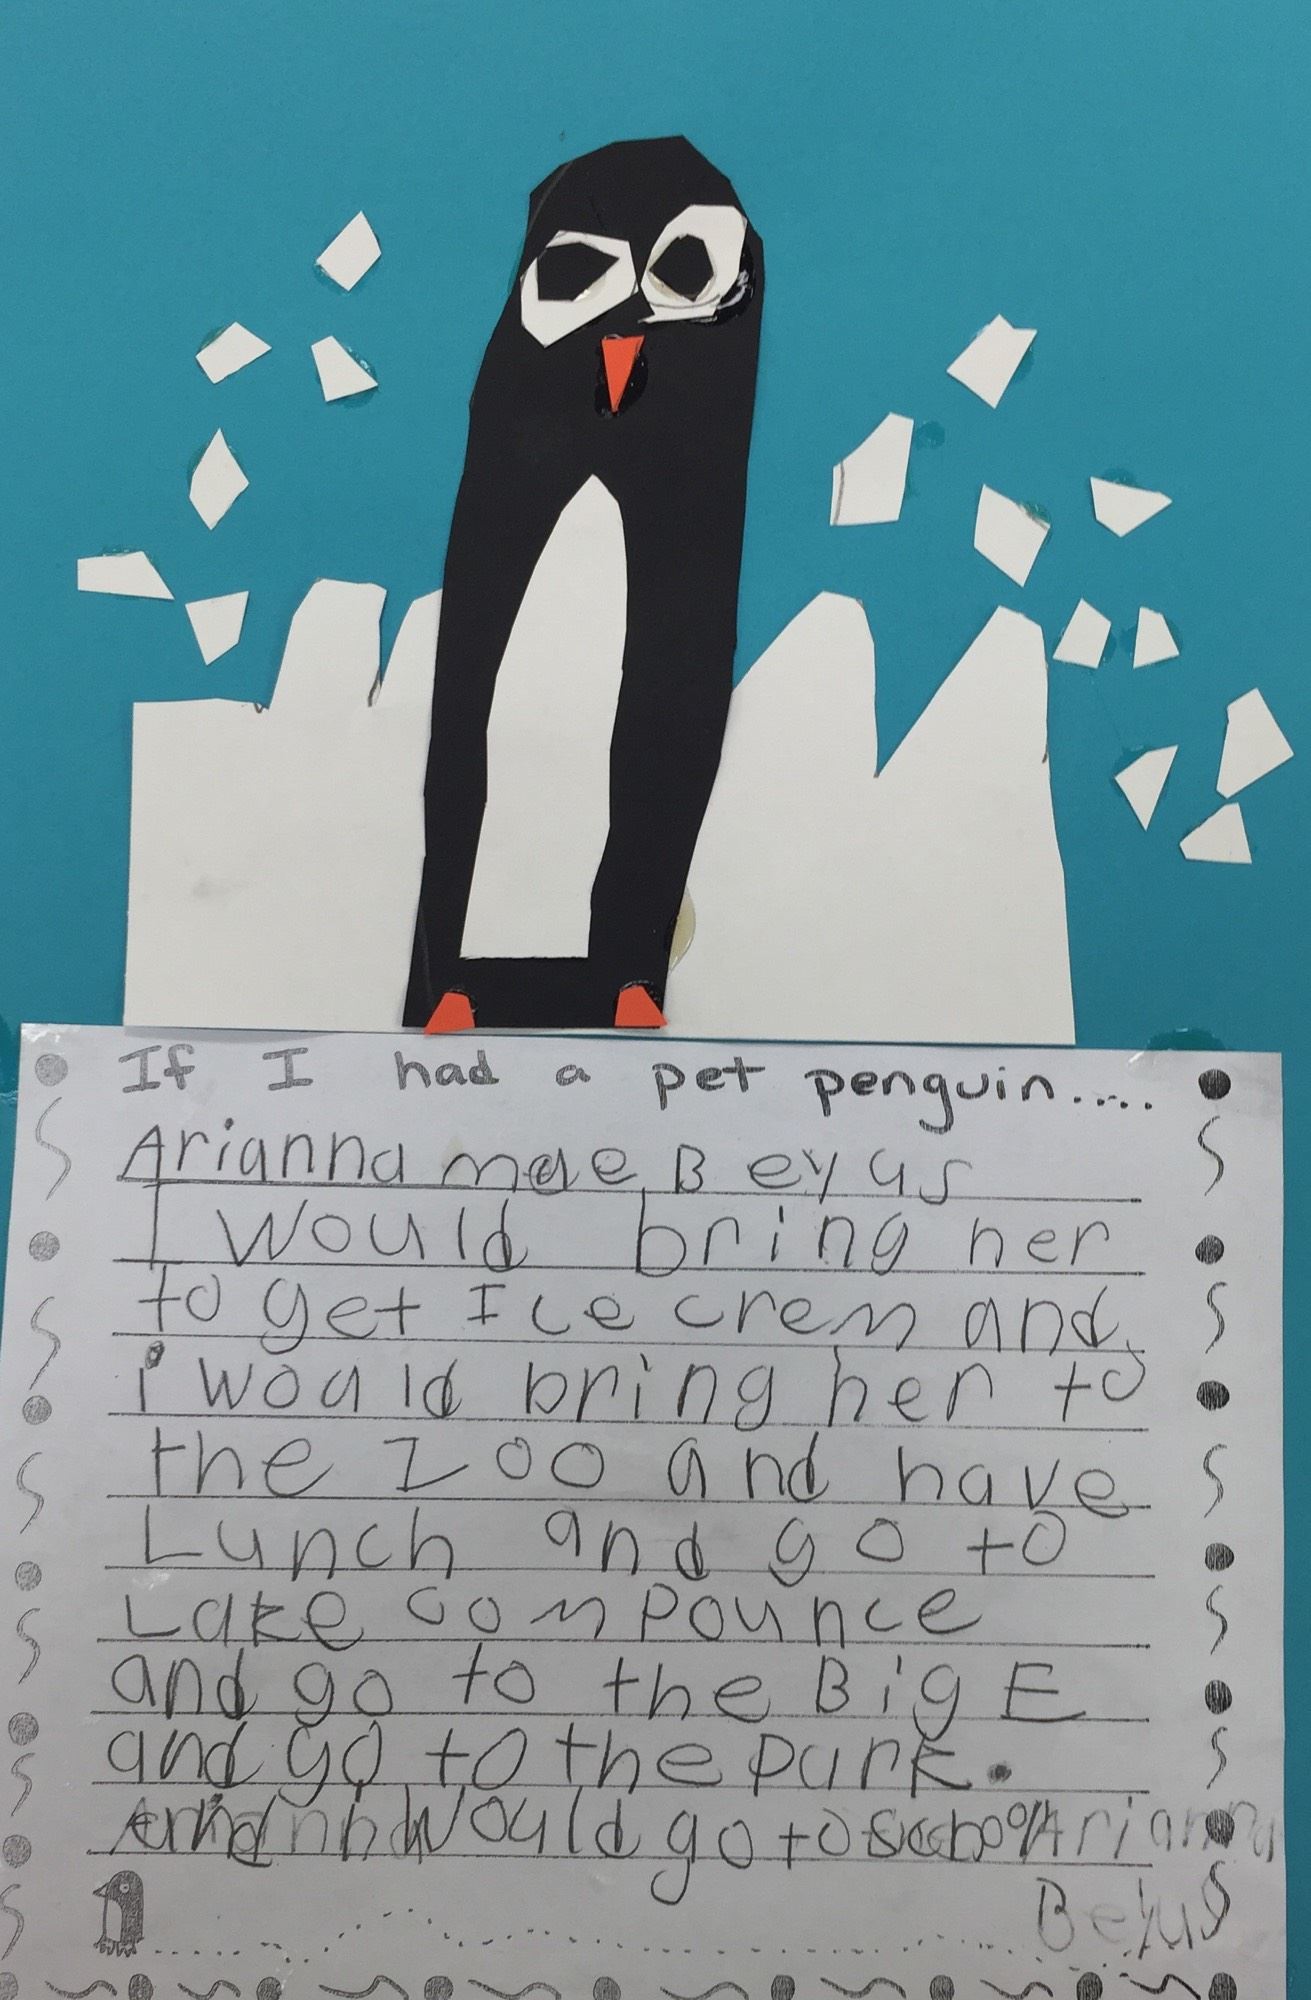 If I had a pet penguin.....
Arianna mae Beyus
I Would bring her
to get Ice crem and
i would bring her to
the zoo and have
Lunch and go to
Lake compounce
and go to the Big E
and go to the park.
would go to school Arianna
Beyus